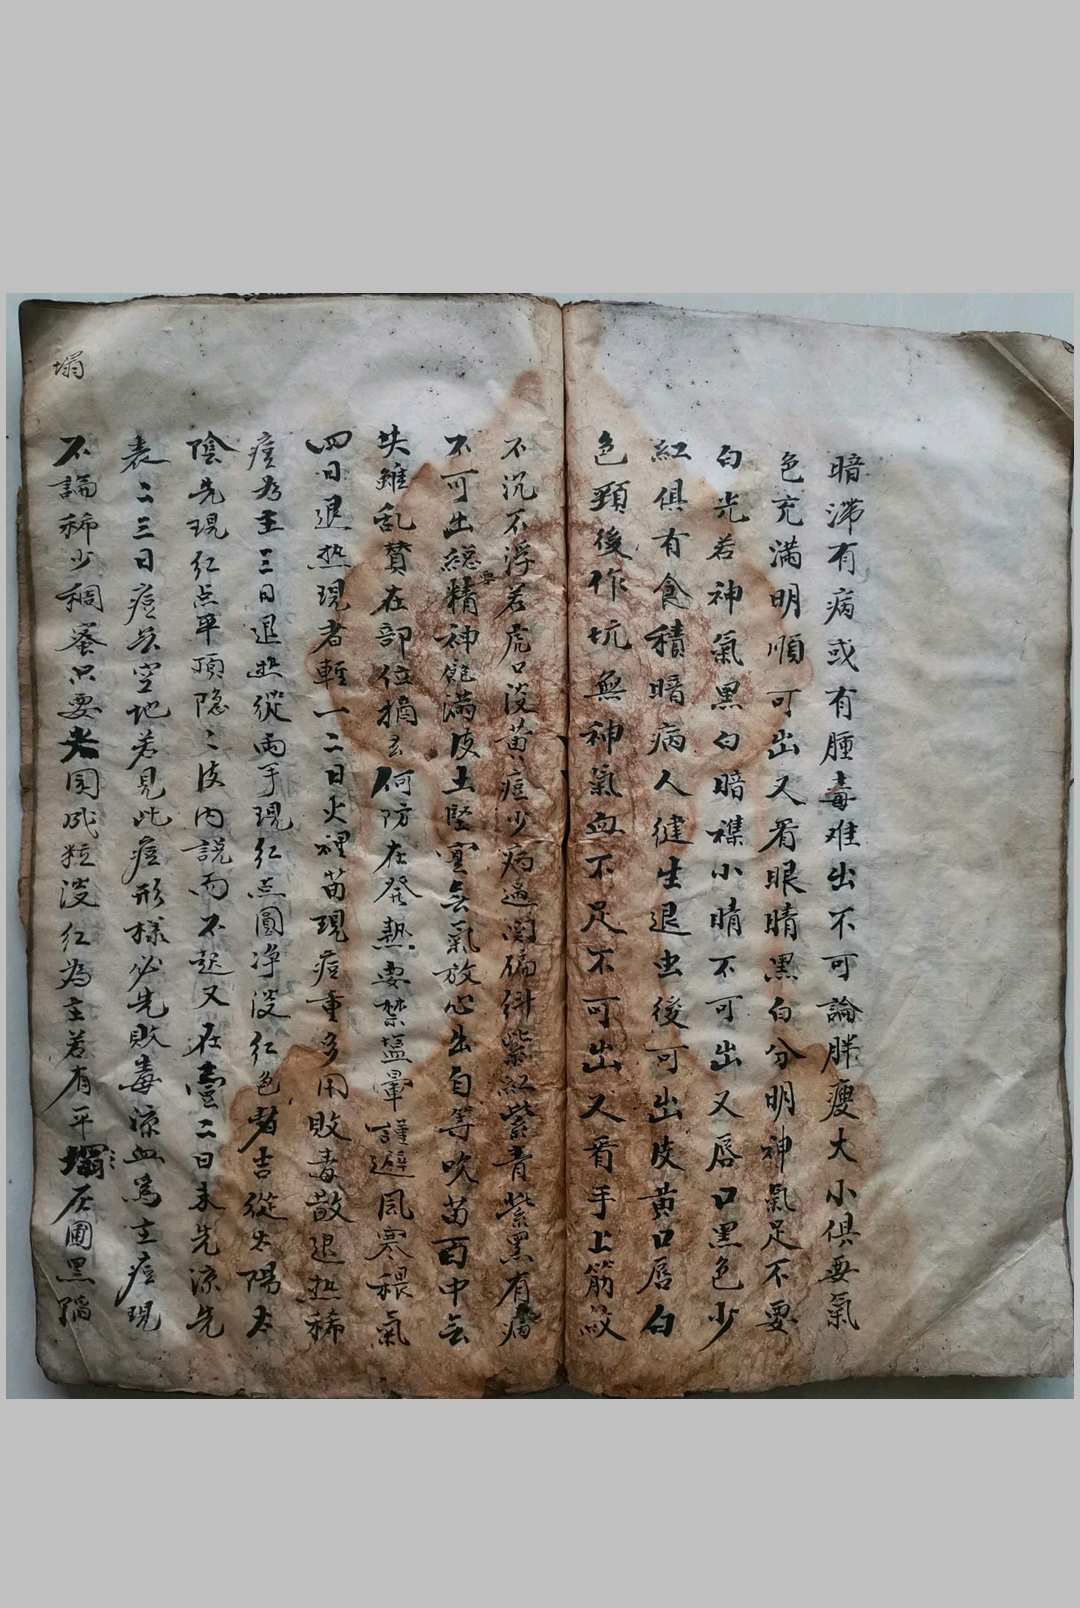 暗滞有病或有腫毒难出不可論胖瘦大小俱要氣
色充满明順可出又看眼睛黑白分明神氣足不要
白光若神氣黑白暗襍小睛不可出又唇口黑色少
紅俱有食積暗病人健生退出後可出皮黄口唇白
色頸後作坑無神氣血不足不可出又看手上筋紋
不沉不浮若虎口没苗痘少病過関偏併紫紅紫青紫黑有病
不可出總要精神飽满皮土堅實去氣放心出自等吹苗百中無
失雖乱賛在部位摘去何防在発熱要禁塩葷謹避風寒穢氣
四日退热現者輕一二日火裡苗現痘重多用敗毒散退热稀
痘为主三日退热從两手現红点圓净淡红色者吉從太陽太
陰先現红点平顶隐隐皮内説而不起又在壹二日未先凉先
表二三日痘兵空地若見此痘形樣必先敗毒凉血為主痘現
不論稀少稠蜜只要尖圆成粒淡红為主若有平塌灰圃黑陷
塌